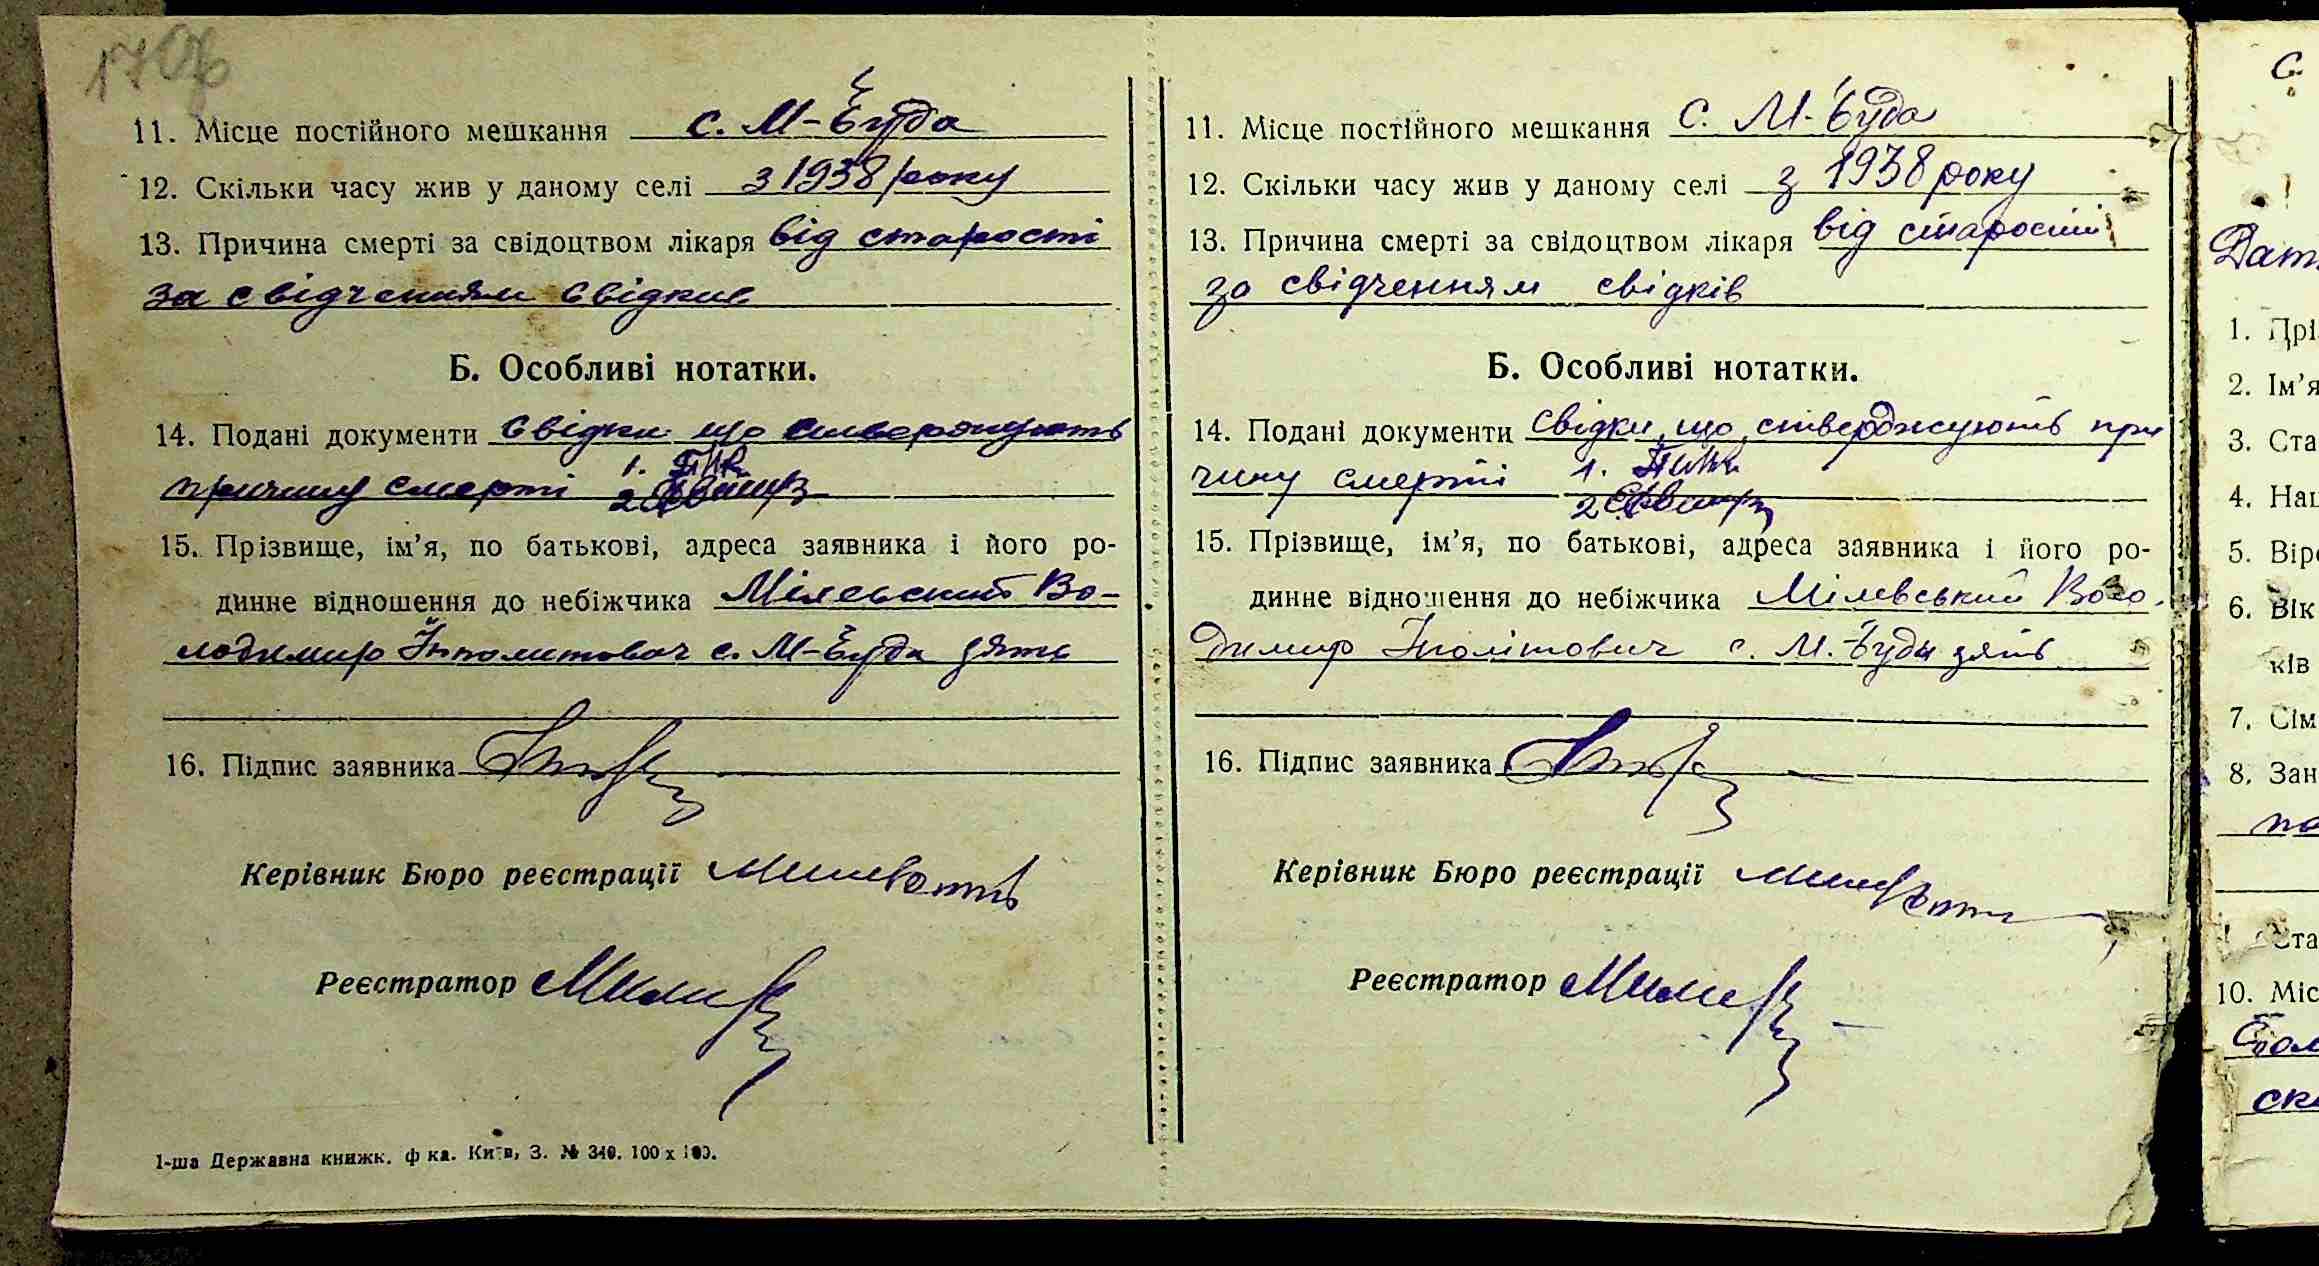 11. Місце постійного мешкання с. М-Буда
12. Скільки часу жив у даному селі з 1938 року
13. Причина смерті за свідоцтвом лікаря від старости
за свідченням свідків
Б. Особливі нотатки.
14. Подані документи Свідки що стверджують
причину смерті 1.
2
15. Прізвище, ім’я, по батькові, адреса заявника і його ро-
динне відношення до небіжчика Мілевський Во-
лодимир Іполитович с. М-Буда зять
16. Підпис заявника
Керівник Бюро реєстрації
Реєстратор
1-ша Державна книжк. ф ка. Київ, З. № 340. 100 х 100.
11. Місце постійного мешкання с. М-Буда
12. Скільки часу жив у даному селі з 1938 року
13. Причина смерті за свідоцтвом лікаря від старости
за свідченням свідків
Б. Особливі нотатки.
14. Подані документи свідки, що стверджують при
чину смерті 1.
2
15. Прізвище, ім’я, по батькові, адреса заявника і його ро-
динне відношення до небіжчика Мілевський Воло-
димир Іполітович с. М-Буда зять
16. Підпис заявника
Керівник Бюро реєстрації
Реєстратор
с
Дат
1. Прі
2. Ім’я
3. Ста
4. Нац
5. Віро
6. Вік
ків
7. Сім
8. Зан
по
Ста
10. Міс
ск